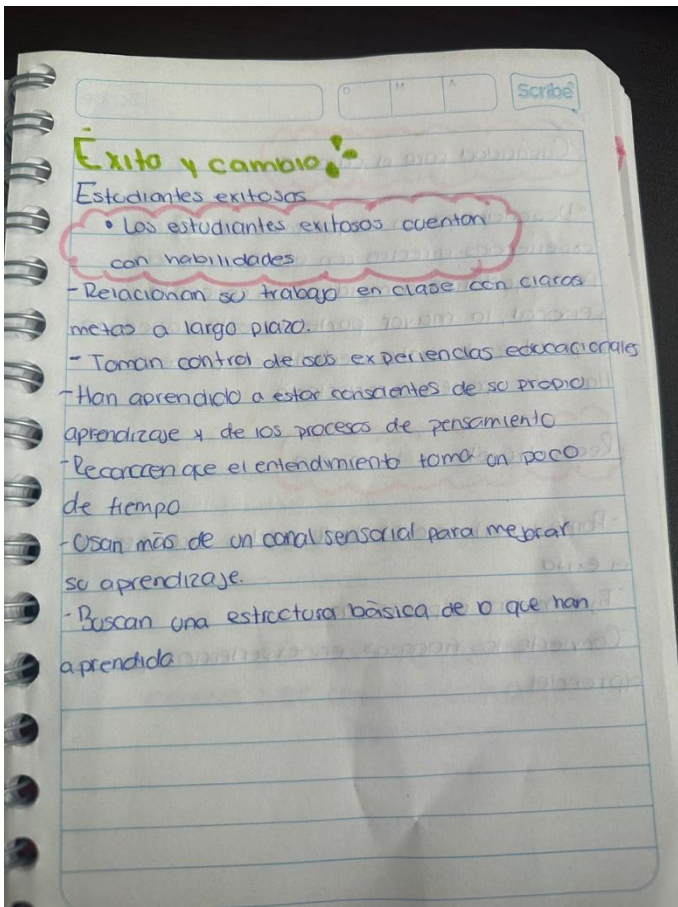 Scribe
D M A
Éxito y cambio!
Estudiantes exitosos
• Los estudiantes exitosos cuentan
con habilidades
- Relacionan su trabajo en clase con claras
metas a largo plazo.
- Toman control de sus experiencias educacionales
- Han aprendido a estar conscientes de su propio
aprendizaje y de los procesos de pensamiento
- Reconocen que el entendimiento toma un poco
de tiempo
- Usan más de un canal sensorial para mejorar
su aprendizaje.
- Buscan una estructura básica de lo que han
aprendida